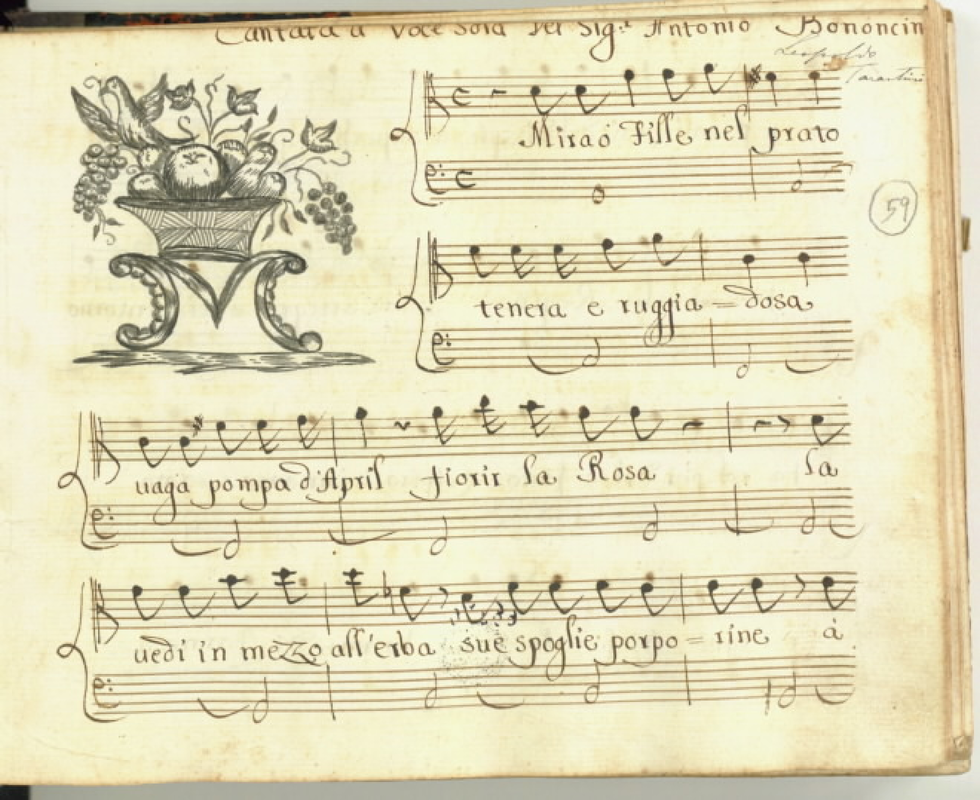 Cantata à Voce Sola Del Sig.r Antonio Bononcin
Leopoldo
Tarantini
Mira ò Fille nel prato
59
tenera e ruggia=dosa
uaga pompa d'April fiorir la Rosa la
uedi in mezzo all'erba sue spoglie porpo=rine à